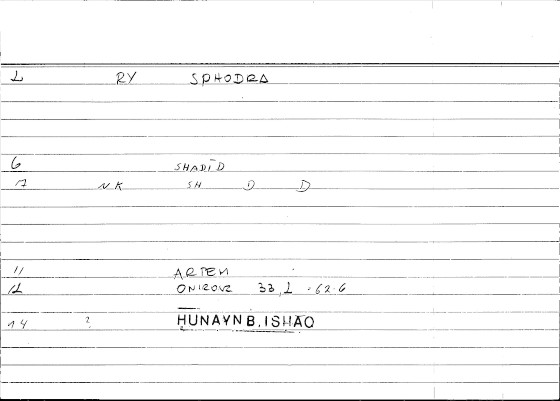 1 RY SPHODRA
6 SHADĪD
7 NK SH D D
11 ARTEM
12 ONIROCR 33,1 62.6
14 ? HUNAYN B. ISHAQ